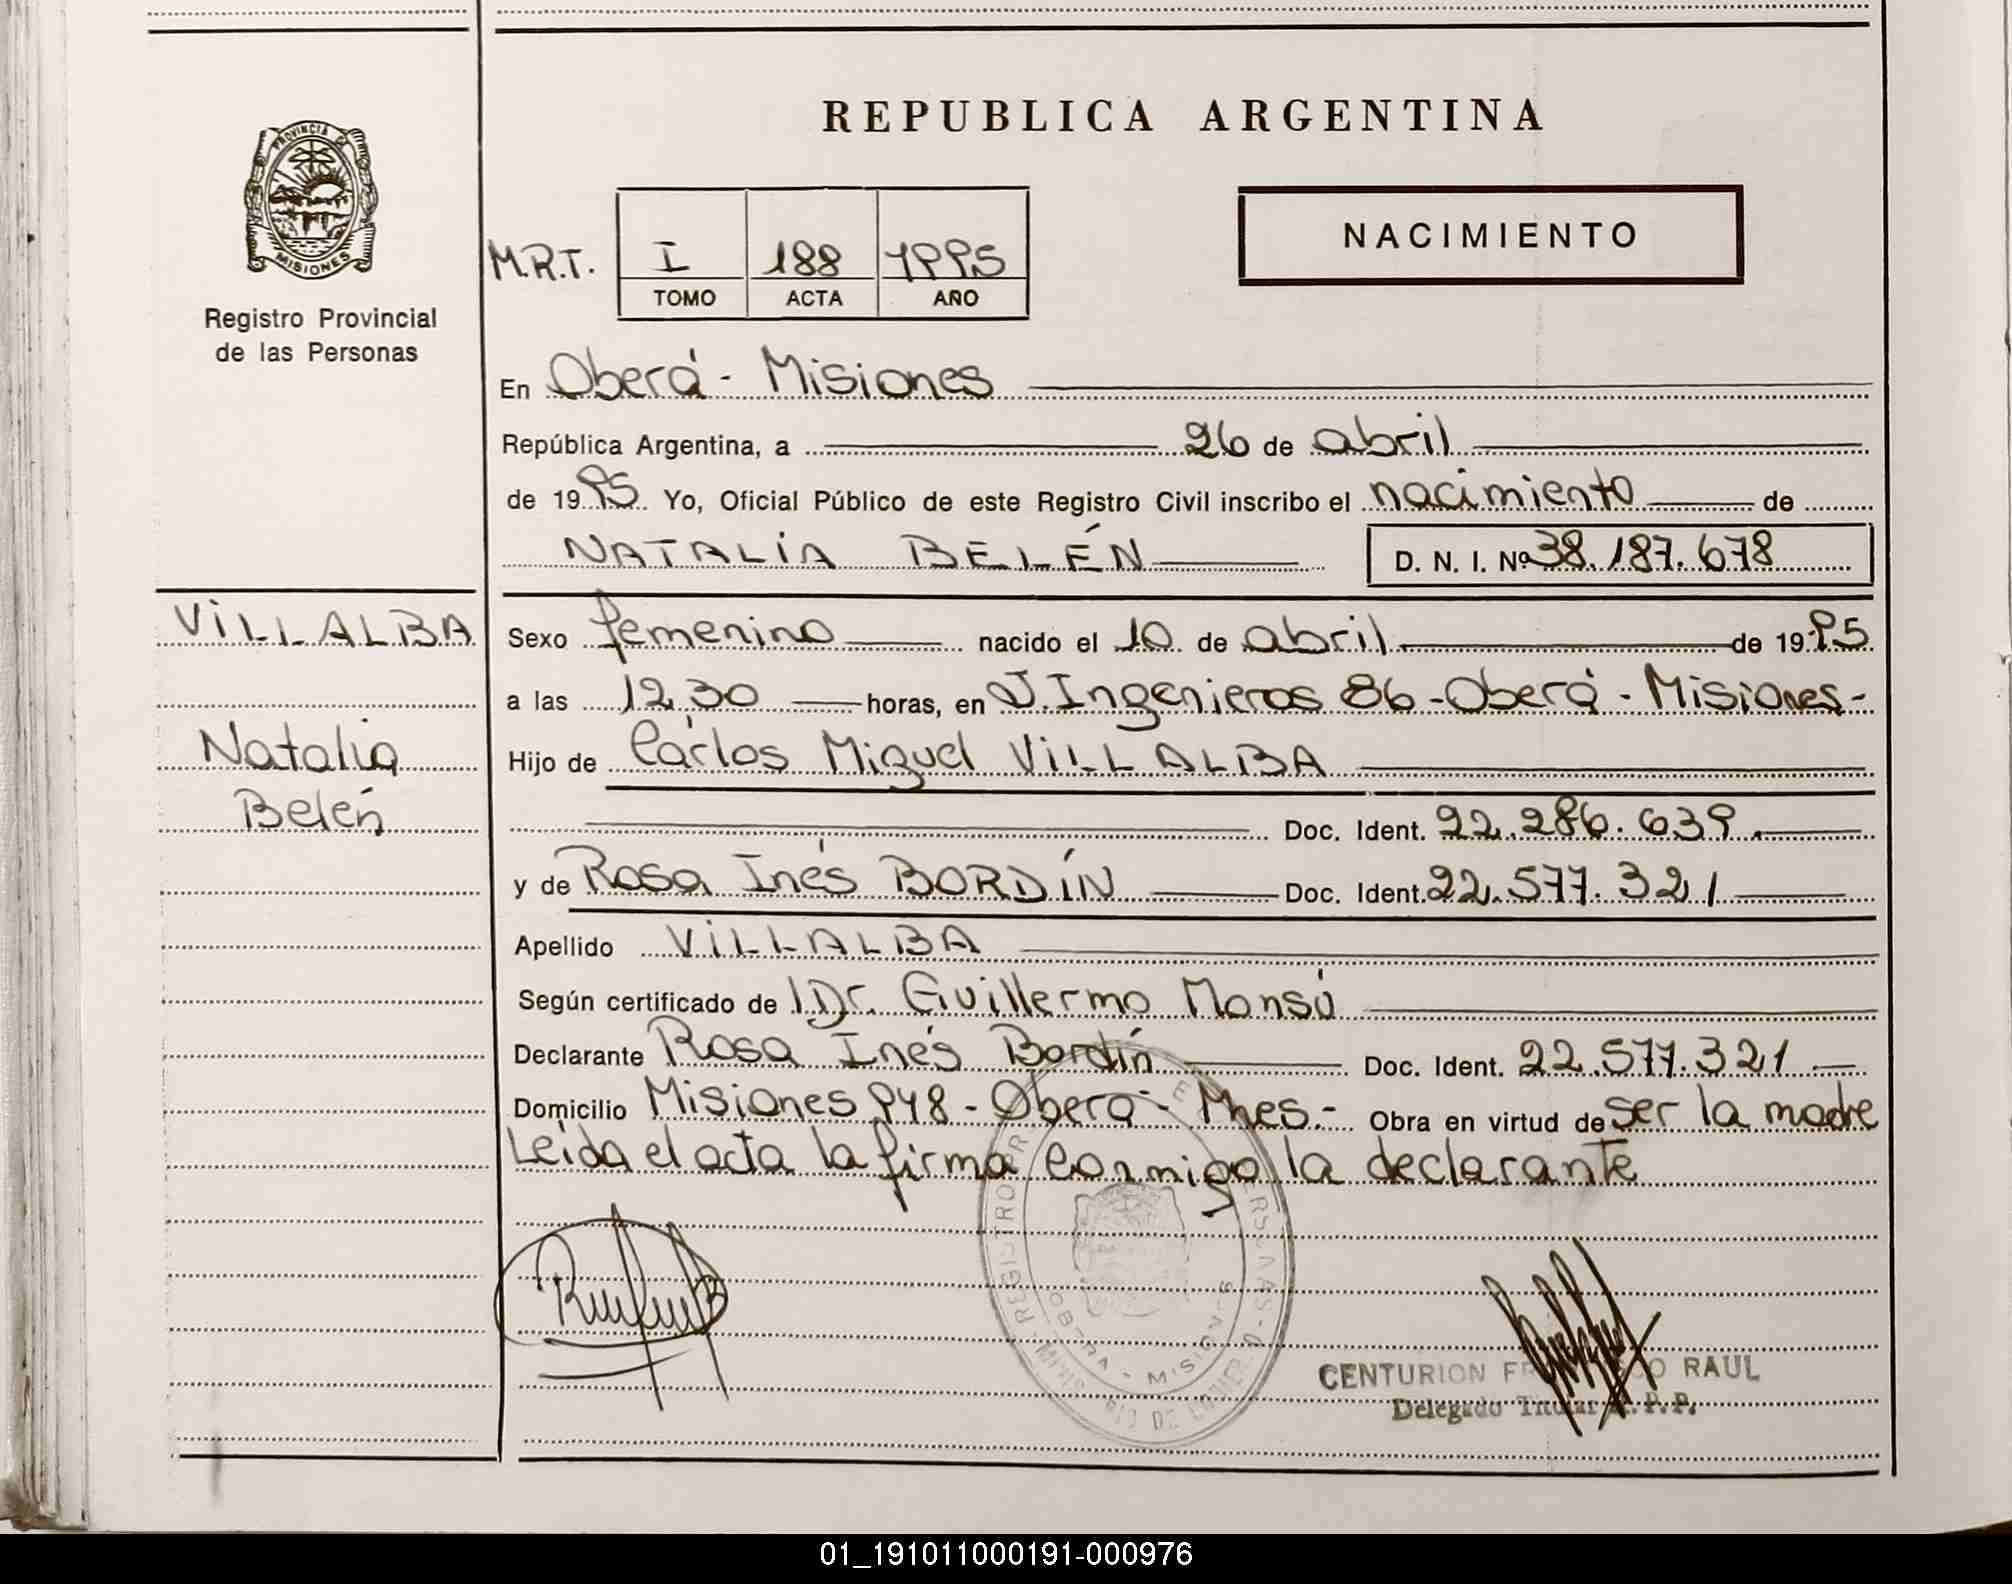 REPUBLICA ARGENTINA
PROVINCIA DE
MISIONES
Registro Provincial
de las Personas
M.R.T.
I 188 1995
TOMO ACTA AÑO
NACIMIENTO
En Oberá - Misiones
República Argentina, a 26 de abril
de 1995. Yo, Oficial Público de este Registro Civil inscribo el nacimiento de
NATALIA BELÉN D. N. I. Nº 38.187.678
VILLALBA
Natalia
Belén
Sexo femenino nacido el 10 de abril de 1995
a las 12,30 horas, en J. Ingenieros 86 - Oberá - Misiones -
Hijo de Carlos Miguel VILLALBA
Doc. Ident. 22.286.639.
y de Rosa Inés BORDÍN Doc. Ident. 22.577.321
Apellido VILLALBA
Según certificado de Dr. Guillermo Monsú
Declarante Rosa Inés Bordín Doc. Ident. 22.577.321
Domicilio Misiones 948 - Oberá - Mnes.- Obra en virtud de ser la madre
Leida el acta la firma conmigo la declarante
REGISTRO
OBERA - MISIONES
CENTURION RAUL
Delegado Titular R. P. P.
01_191011000191-000976